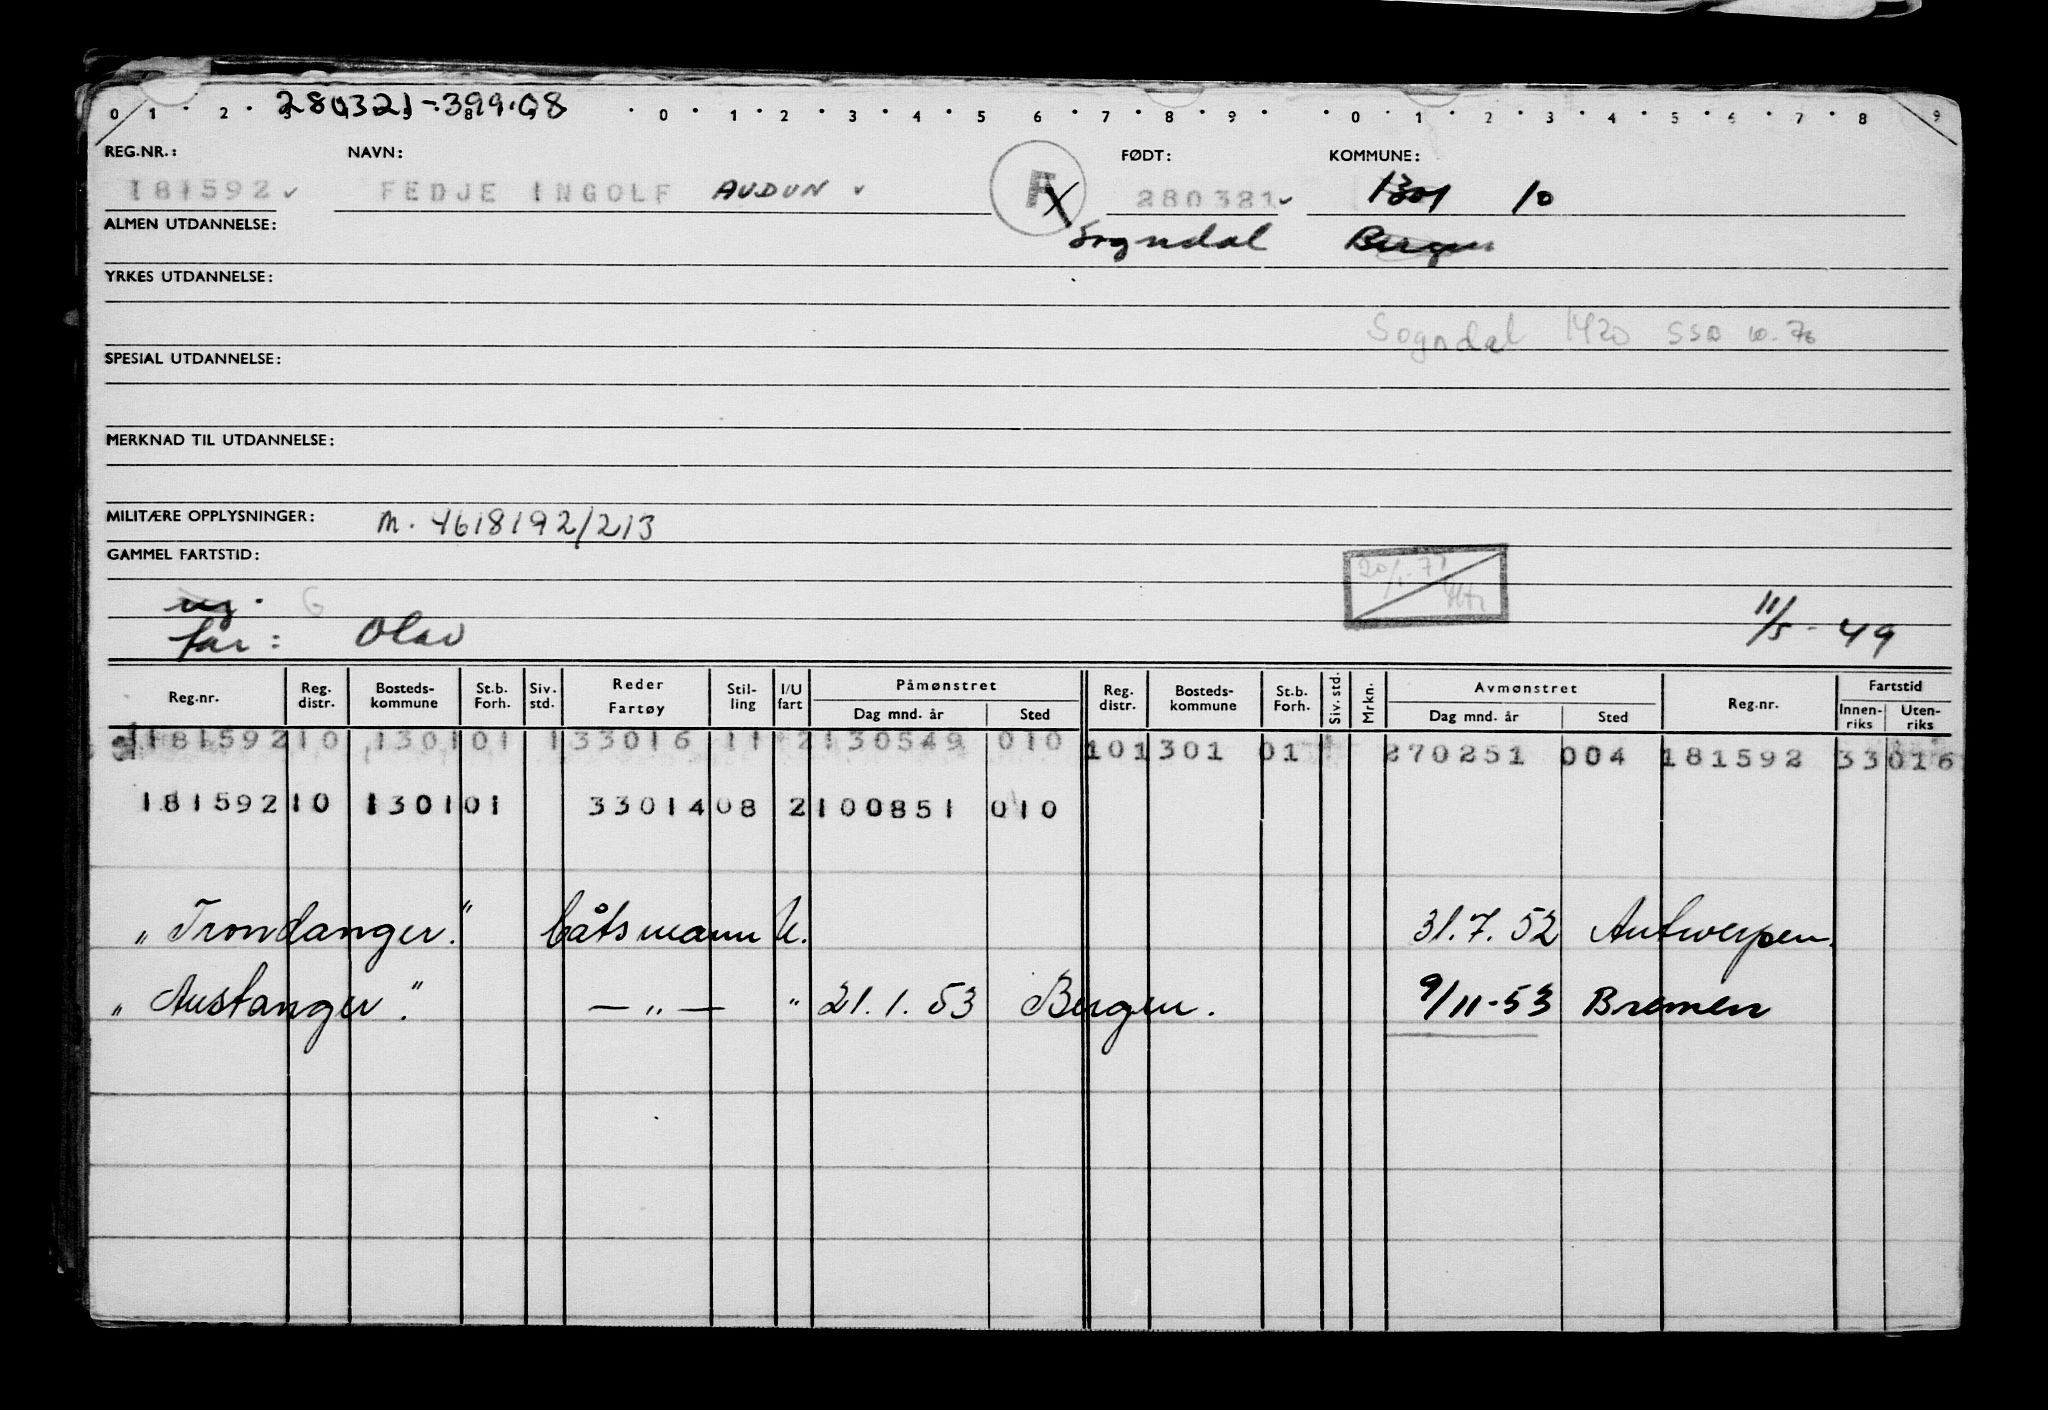 280321-399.08
0 1 2 0 1 2 3 4 5 6 7 8 9 0 1 2 3 4 5 6 7 8 9
REG.NR.: NAVN: FØDT: KOMMUNE:
181592 ✓ FEDJE INGOLF AUDUN ✓ F X 280321 ✓ 1301 10
ALMEN UTDANNELSE: Sogndal Bergen
YRKES UTDANNELSE:
Sogndal 1420 SSD 10.76
SPESIAL UTDANNELSE:
MERKNAD TIL UTDANNELSE:
MILITÆRE OPPLYSNINGER: M. 4618192/213
GAMMEL FARTSTID:
ug. G
far: Olav 11/5-49
Reg.nr. Reg. distr. Bosteds-kommune St.b. Forh. Siv. std. Reder Fartøy Stil-ling I/U fart Påmønstret Dag mnd. år Sted Reg. distr. Bosteds-kommune St.b. Forh. Siv. std. Mrkn. Avmønstret Dag mnd. år Sted Reg.nr. Fartstid Innen-riks Uten-riks
181592 10 1301 01 1 33016 11 2 130549 010 10 1301 01 270251 004 181592 33016
181592 10 1301 01 33014 08 2 100851 010
„Trondanger." båtsmann U. 31.7.52 Antwerpen.
„Austanger." — „ — " 21.1.53 Bergen. 9/11-53 Bremen